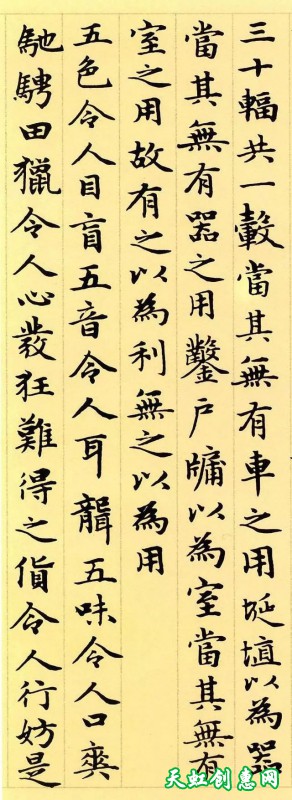 三十輻共一轂當其無有車之用埏埴以為器
當其無有器之用鑿戶牖以為室當其無有
室之用故有之以為利無之以為用
五色令人目盲五音令人耳聾五味令人口爽
馳騁田獵令人心發狂難得之貨令人行妨是
天虹创惠网